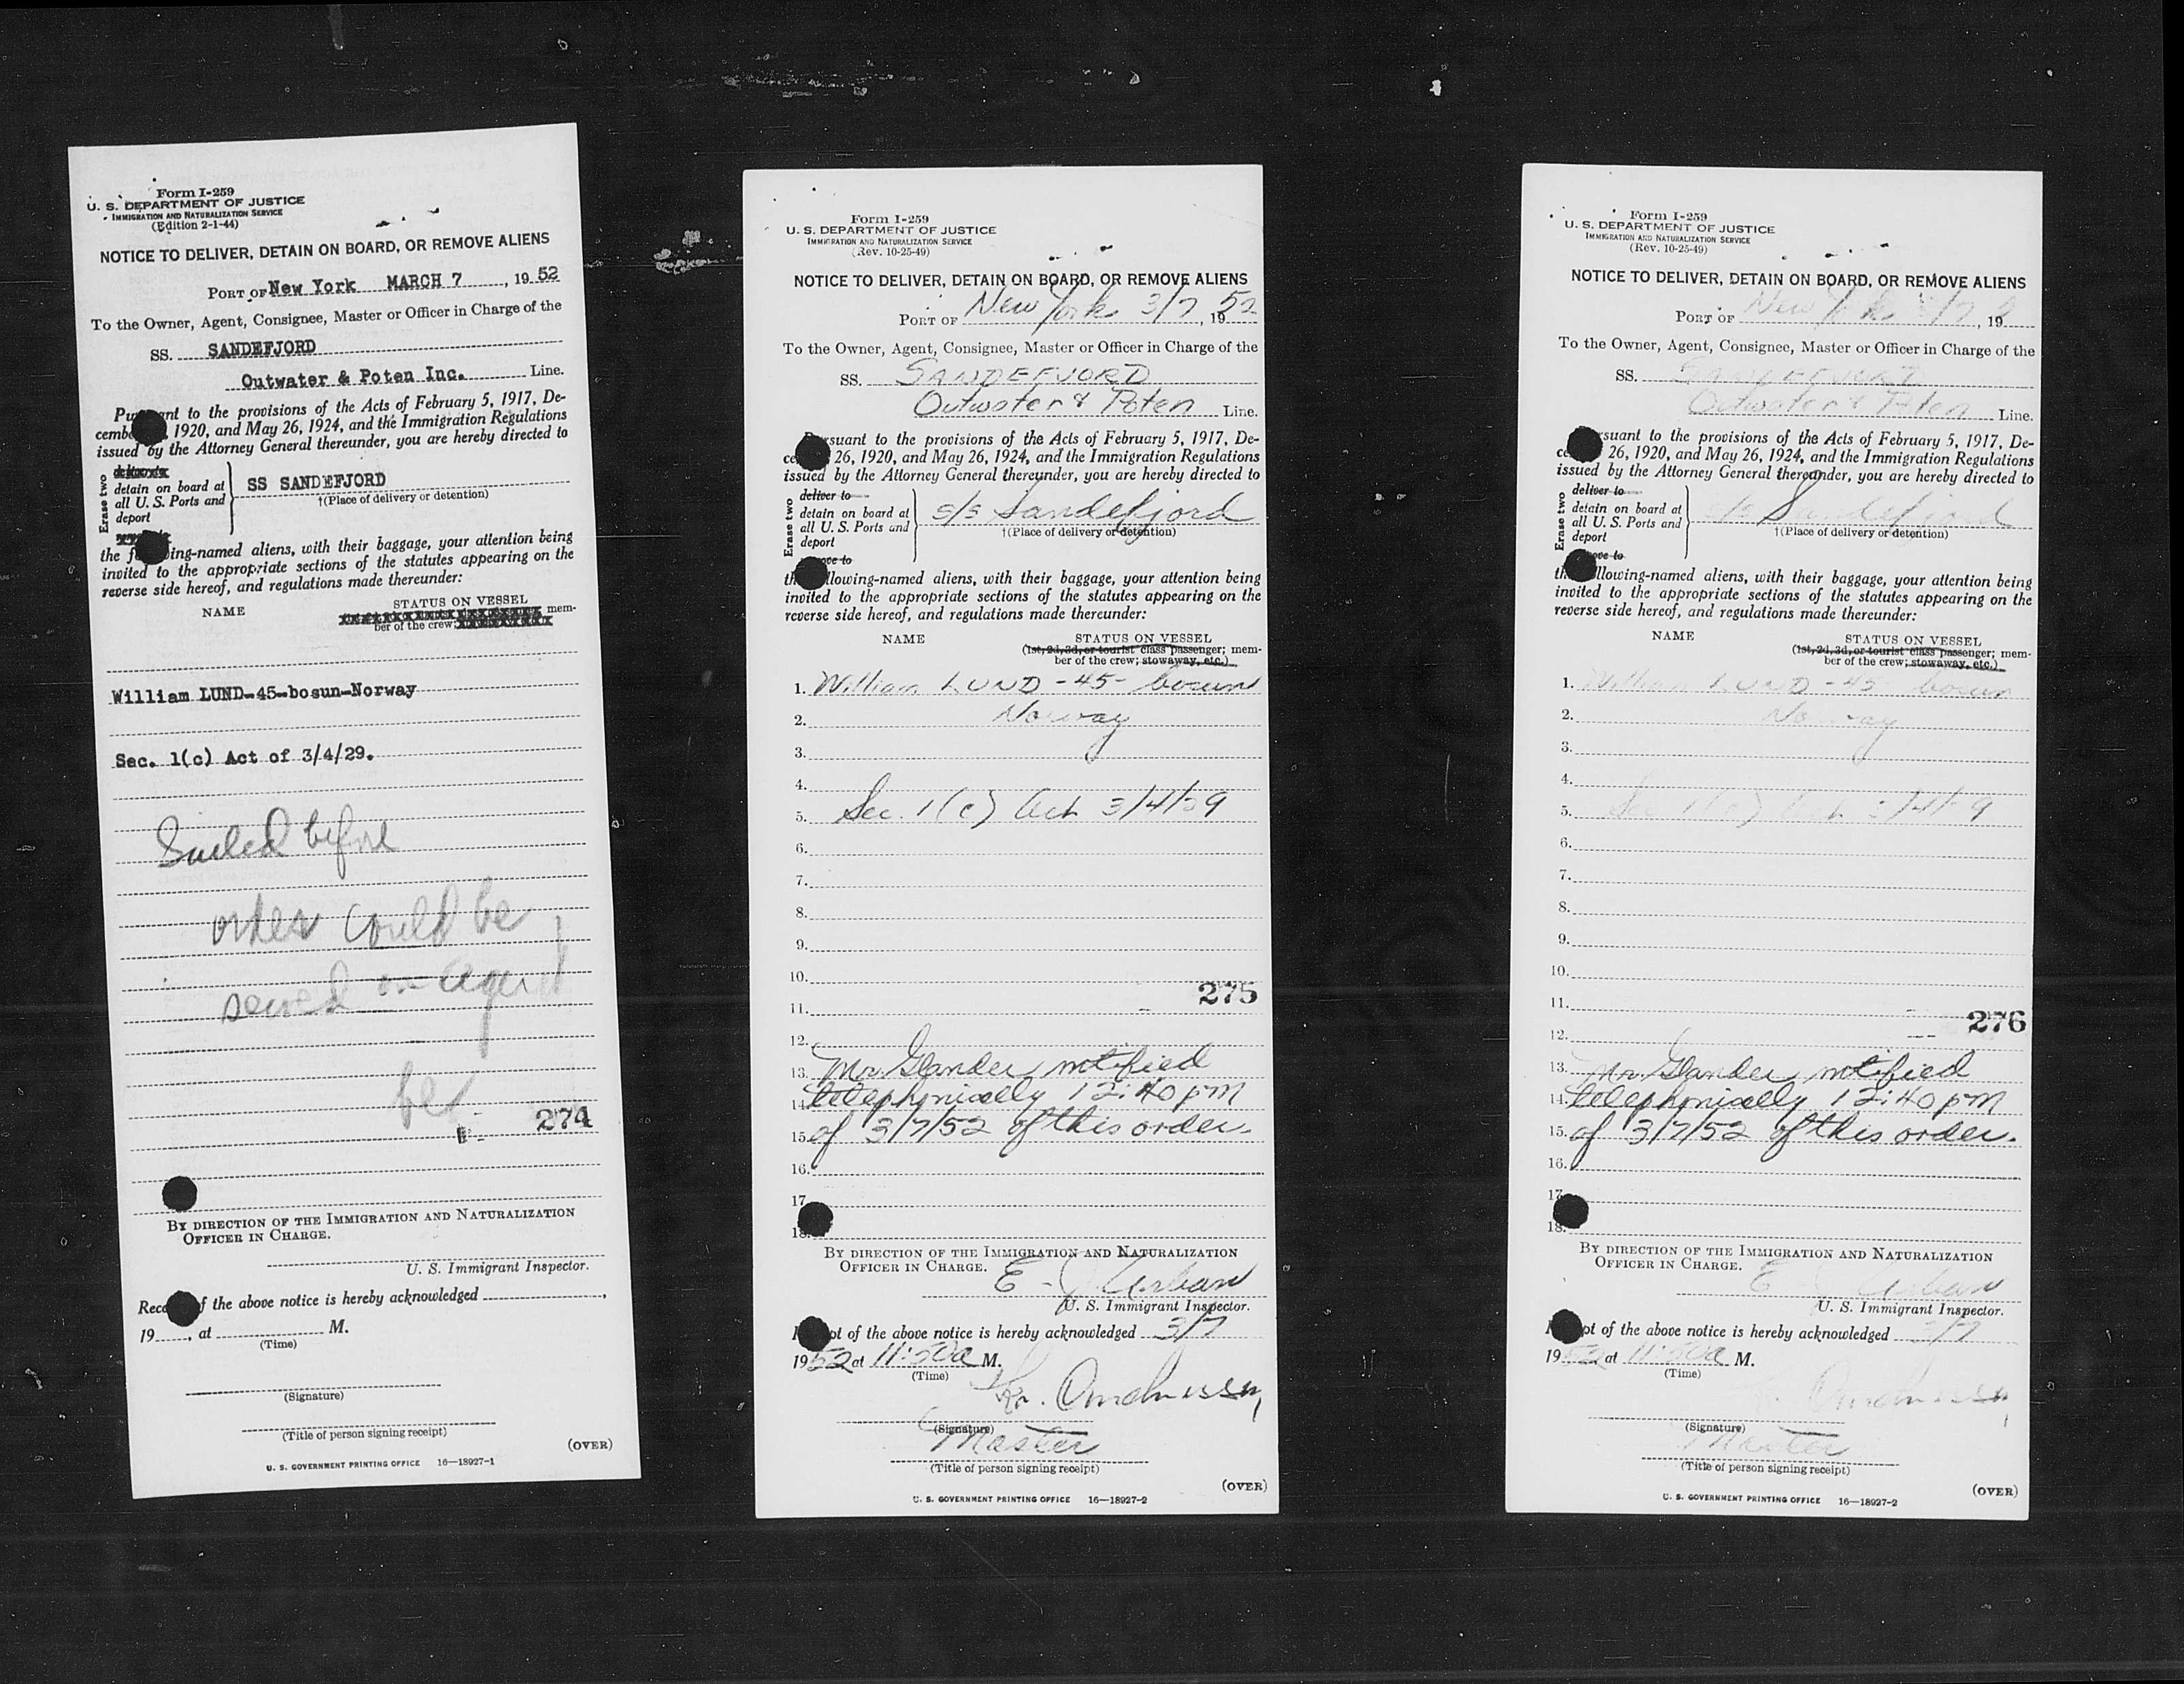 Form I-259
U. S. DEPARTMENT OF JUSTICE
IMMIGRATION AND NATURALIZATION SERVICE
(Edition 2-1-44)
NOTICE TO DELIVER, DETAIN ON BOARD, OR REMOVE ALIENS
PORT OF New York MARCH 7, 19 52
To the Owner, Agent, Consignee, Master or Officer in Charge of the
SS. SANDEFJORD
Outwater & Poten Inc. Line.
ant to the provisions of the Acts of February 5, 1917, De-
cembe 1920, and May 26, 1924, and the Immigration Regulations
issued by the Attorney General thereunder, you are hereby directed to
Erase two
detain on board at
all U. S. Ports and
deport
SS SANDEFJORD
†(Place of delivery or detention)
the f ing-named aliens, with their baggage, your attention being
invited to the appropriate sections of the statutes appearing on the
reverse side hereof, and regulations made thereunder:
NAME STATUS ON VESSEL
mem-
ber of the crew;
William LUND-45-bosun-Norway
Sec. 1(c) Act of 3/4/29.
Sailed before
order could be
served on agent
274
BY DIRECTION OF THE IMMIGRATION AND NATURALIZATION
OFFICER IN CHARGE.
U. S. Immigrant Inspector.
Rece f the above notice is hereby acknowledged ,
19 , at M.
(Time)
(Signature)
(Title of person signing receipt)
(OVER)
U. S. GOVERNMENT PRINTING OFFICE 16—18927-1
Form I-259
U. S. DEPARTMENT OF JUSTICE
IMMIGRATION AND NATURALIZATION SERVICE
(Rev. 10-25-49)
NOTICE TO DELIVER, DETAIN ON BOARD, OR REMOVE ALIENS
PORT OF New York 3/7, 19 52
To the Owner, Agent, Consignee, Master or Officer in Charge of the
SS. SANDEFJORD
Outwater & Poten Line.
rsuant to the provisions of the Acts of February 5, 1917, De-
ce 26, 1920, and May 26, 1924, and the Immigration Regulations
issued by the Attorney General thereunder, you are hereby directed to
Erase two
deliver to
detain on board at
all U. S. Ports and
deport
ove to
s/s Sandefjord
†(Place of delivery or detention)
th llowing-named aliens, with their baggage, your attention being
invited to the appropriate sections of the statutes appearing on the
reverse side hereof, and regulations made thereunder:
NAME STATUS ON VESSEL
(1st, 2d, 3d, or tourist class passenger; mem-
ber of the crew; stowaway, etc.)
1. William LUND - 45 - bosun
2. Norway
3.
4.
5. Sec. 1(c) Act 3/4/29
6.
7.
8.
9.
10.
275
11.
12.
13. Mr. Glander notified
14. telephonically 12:40 pm
15. of 3/7/52 of this order.
16.
17.
18.
BY DIRECTION OF THE IMMIGRATION AND NATURALIZATION
OFFICER IN CHARGE. E. J. Urban
U. S. Immigrant Inspector.
pt of the above notice is hereby acknowledged 3/7
19 52 at 11:50a M.
(Time)
(Signature)
Master
(Title of person signing receipt)
(OVER)
U. S. GOVERNMENT PRINTING OFFICE 16—18927-2
Form I-259
U. S. DEPARTMENT OF JUSTICE
IMMIGRATION AND NATURALIZATION SERVICE
(Rev. 10-25-49)
NOTICE TO DELIVER, DETAIN ON BOARD, OR REMOVE ALIENS
PORT OF New York 3/7, 19
To the Owner, Agent, Consignee, Master or Officer in Charge of the
SS. SANDEFJORD
Outwater & Poten Line.
rsuant to the provisions of the Acts of February 5, 1917, De-
ce 26, 1920, and May 26, 1924, and the Immigration Regulations
issued by the Attorney General thereunder, you are hereby directed to
Erase two
deliver to
detain on board at
all U. S. Ports and
deport
ove to
s/s Sandefjord
†(Place of delivery or detention)
th llowing-named aliens, with their baggage, your attention being
invited to the appropriate sections of the statutes appearing on the
reverse side hereof, and regulations made thereunder:
NAME STATUS ON VESSEL
(1st, 2d, 3d, or tourist class passenger; mem-
ber of the crew; stowaway, etc.)
1. William LUND - 45 bosun
2. Norway
3.
4.
5. Sec 1(c) Act 3/4/29
6.
7.
8.
9.
10.
11.
276
12.
13. Mr. Glander notified
14. telephonically 12:40 pm
15. of 3/7/52 of this order.
16.
17.
18.
BY DIRECTION OF THE IMMIGRATION AND NATURALIZATION
OFFICER IN CHARGE. E Urban
U. S. Immigrant Inspector.
pt of the above notice is hereby acknowledged 3/7
19 52 at 11:50a M.
(Time)
(Signature)
Master
(Title of person signing receipt)
(OVER)
U. S. GOVERNMENT PRINTING OFFICE 16—18927-2